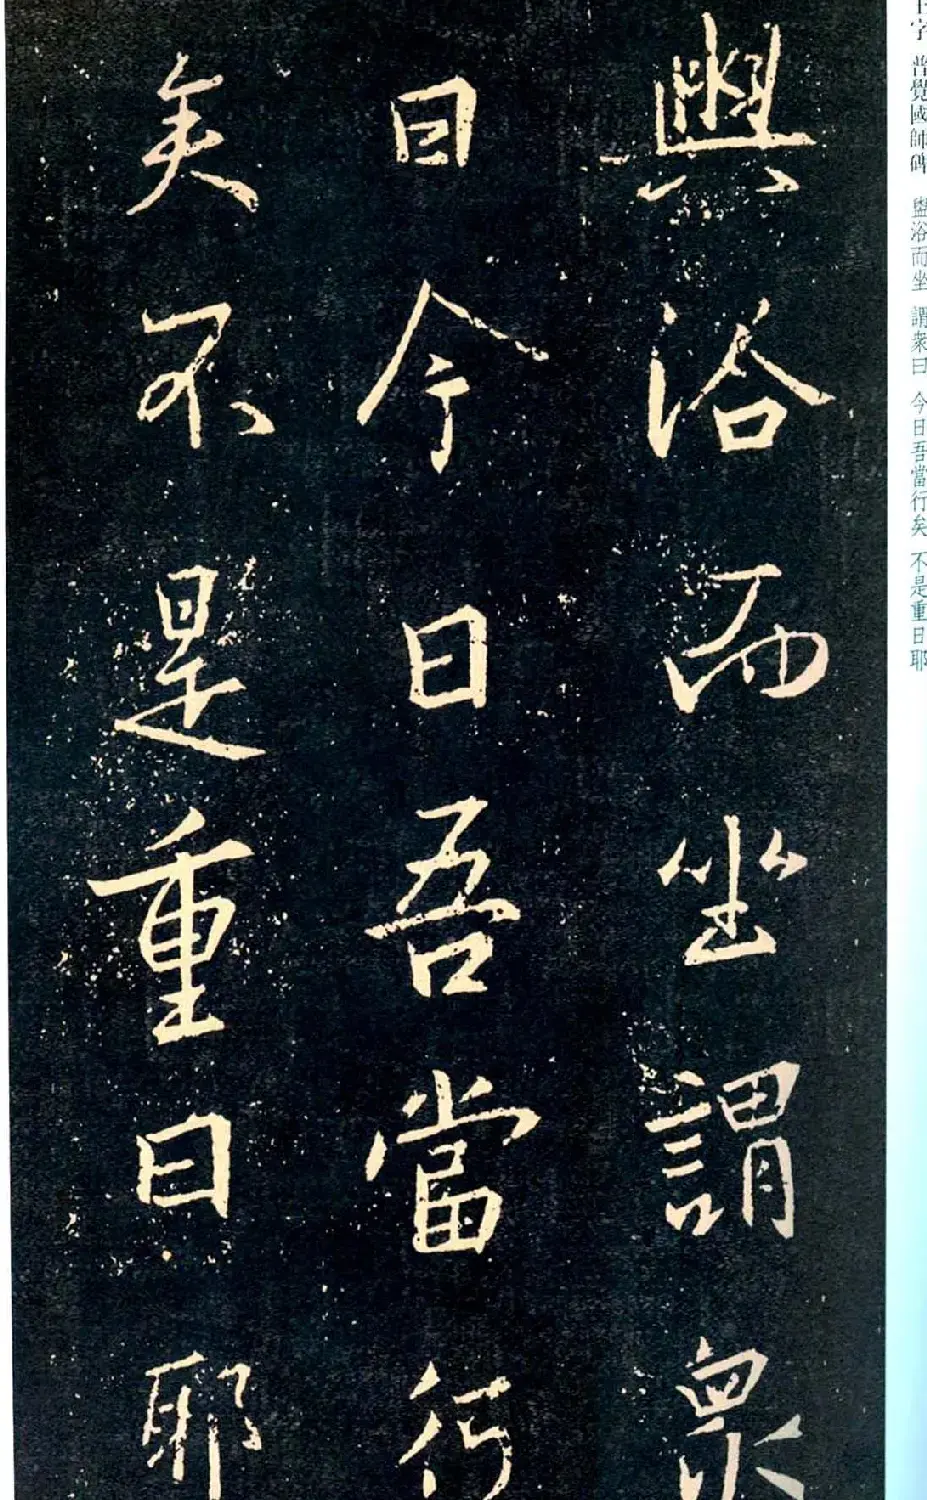 王字 普覺國師碑 盥浴而坐 謂衆曰 今日吾當行矣 不是重日耶
盥浴而坐謂衆
曰今日吾當行
矣不是重日耶